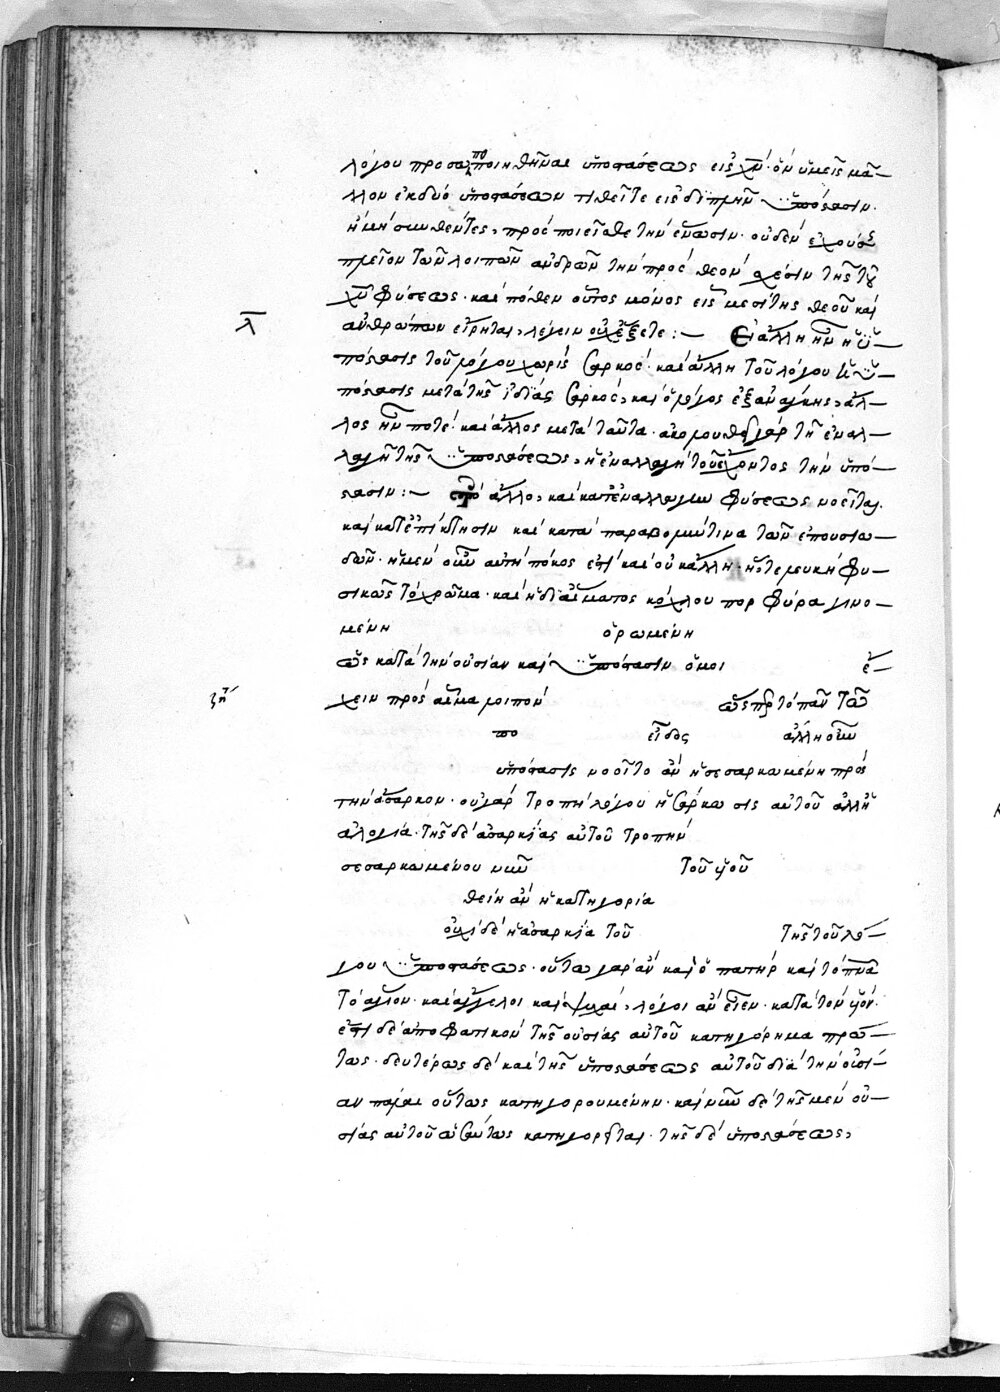 λόγου προσωποποιηθῆναι ὑποστάσεως εἰς χν̄· ὃν ὑμεῖς μᾶ–
λλον ἐκ δυὸ ὑποστάσεων τιθεῖτε εἰς διπλῆν ὑπόστασιν·
ἢ μὴ συνθέντες, προσποιεῖσθε τὴν ἕνωσιν· οὐδὲν ἐχούσης
πλεῖον τῶν λοιπῶν ἀνδρῶν τὴν πρὸς θεὸν σχέσιν τῆς τοῦ
χῡ φύσεως· καὶ πόθεν οὗτος μόνος εἷς μεσίτης θεοῦ καὶ
λ̄
ἀνθρώπων εἴρηται, λέγειν οὐχ ἕξετε :– Εἰ ἄλλη ἦν ἡ ὑ–
πόστασις τοῦ λόγου χωρὶς σαρκός· καὶ ἄλλη τοῦ λόγου ἡ ὑ–
πόστασις μετὰ τῆς ἰδίας σαρκὸς, καὶ ὁ λόγος ἐξ ἀνάγκης, ἄλ–
λος ἦν ποτέ· καὶ ἄλλος μετὰ ταῦτα· ἀκολουθεῖ γὰρ τῇ ἐναλ–
λαγῇ τῆς ὑποστάσεως, ἡ ἐναλλαγὴ τοῦ ἔχοντος τὴν ὑπό–
στασιν :– τὸ ἄλλο, καὶ κατ' ἐναλλαγὴν φύσεως νοεῖται·
καὶ κατ' ἐπίκτησιν καὶ κατὰ παραδομήν τινα τῶν ἐπουσιω–
δῶν· ἡ μὲν οὖν αὐτὴ πόκος ἐστὶ καὶ οὐκ ἄλλη· ἥτε λευκὴ φυ–
σικῶς τὸ χρῶμα· καὶ ἡ δι' αἵματος κόχλου πορφύρα γινο–
μένη ὁρωμένη
ὡς κατὰ τὴν οὐσίαν καὶ ὑπόστασιν ὅμοι ἔ–
ζτ
χειν πρὸς αἷμα λοιπὸν ὥσπερ τὸ πᾶν τῶ
πο εἶδος ἄλλη οὖν
ὑπόστασις νοοῖτο ἂν ἡ σεσαρκωμένη πρὸς
τὴν ἄσαρκον· οὐ γὰρ τροπὴ λόγου ἡ σάρκωσις αὐτοῦ ἀλλ' ἢ
ἀλογία· τῆς δὲ ἀσαρκίας αὐτοῦ τροπὴν
σεσαρκωμένου νῦν τοῦ υἱοῦ
θείη ἂν ἡ κατηγορία
οὐχὶ δὲ ἡ ἀσαρκία τοῦ τῆς τοῦ λό–
γου ὑποστάσεως· οὕτω γὰρ ἂν καὶ ὁ πατὴρ καὶ τὸ πνᾱ
τὸ ἅγιον· καὶ ἄγγελοι καὶ ψυχαὶ, λόγοι ἂν εἶεν· κατὰ τὸν υἱόν·
ἐστὶ δὲ ἀποφατικὸν τῆς οὐσίας αὐτοῦ κατηγόρημα πρώ–
τως· δευτέρως δὲ καὶ τῆς ὑποστάσεως αὐτοῦ διὰ τὴν οὐσί–
αν πάλαι οὕτως κατηγορουμένην· καὶ νῦν δὲ τῆς μὲν οὐ–
σίας αὐτοῦ ὡσαύτως κατηγορεῖται· τῆς δὲ ὑποστάσεως,